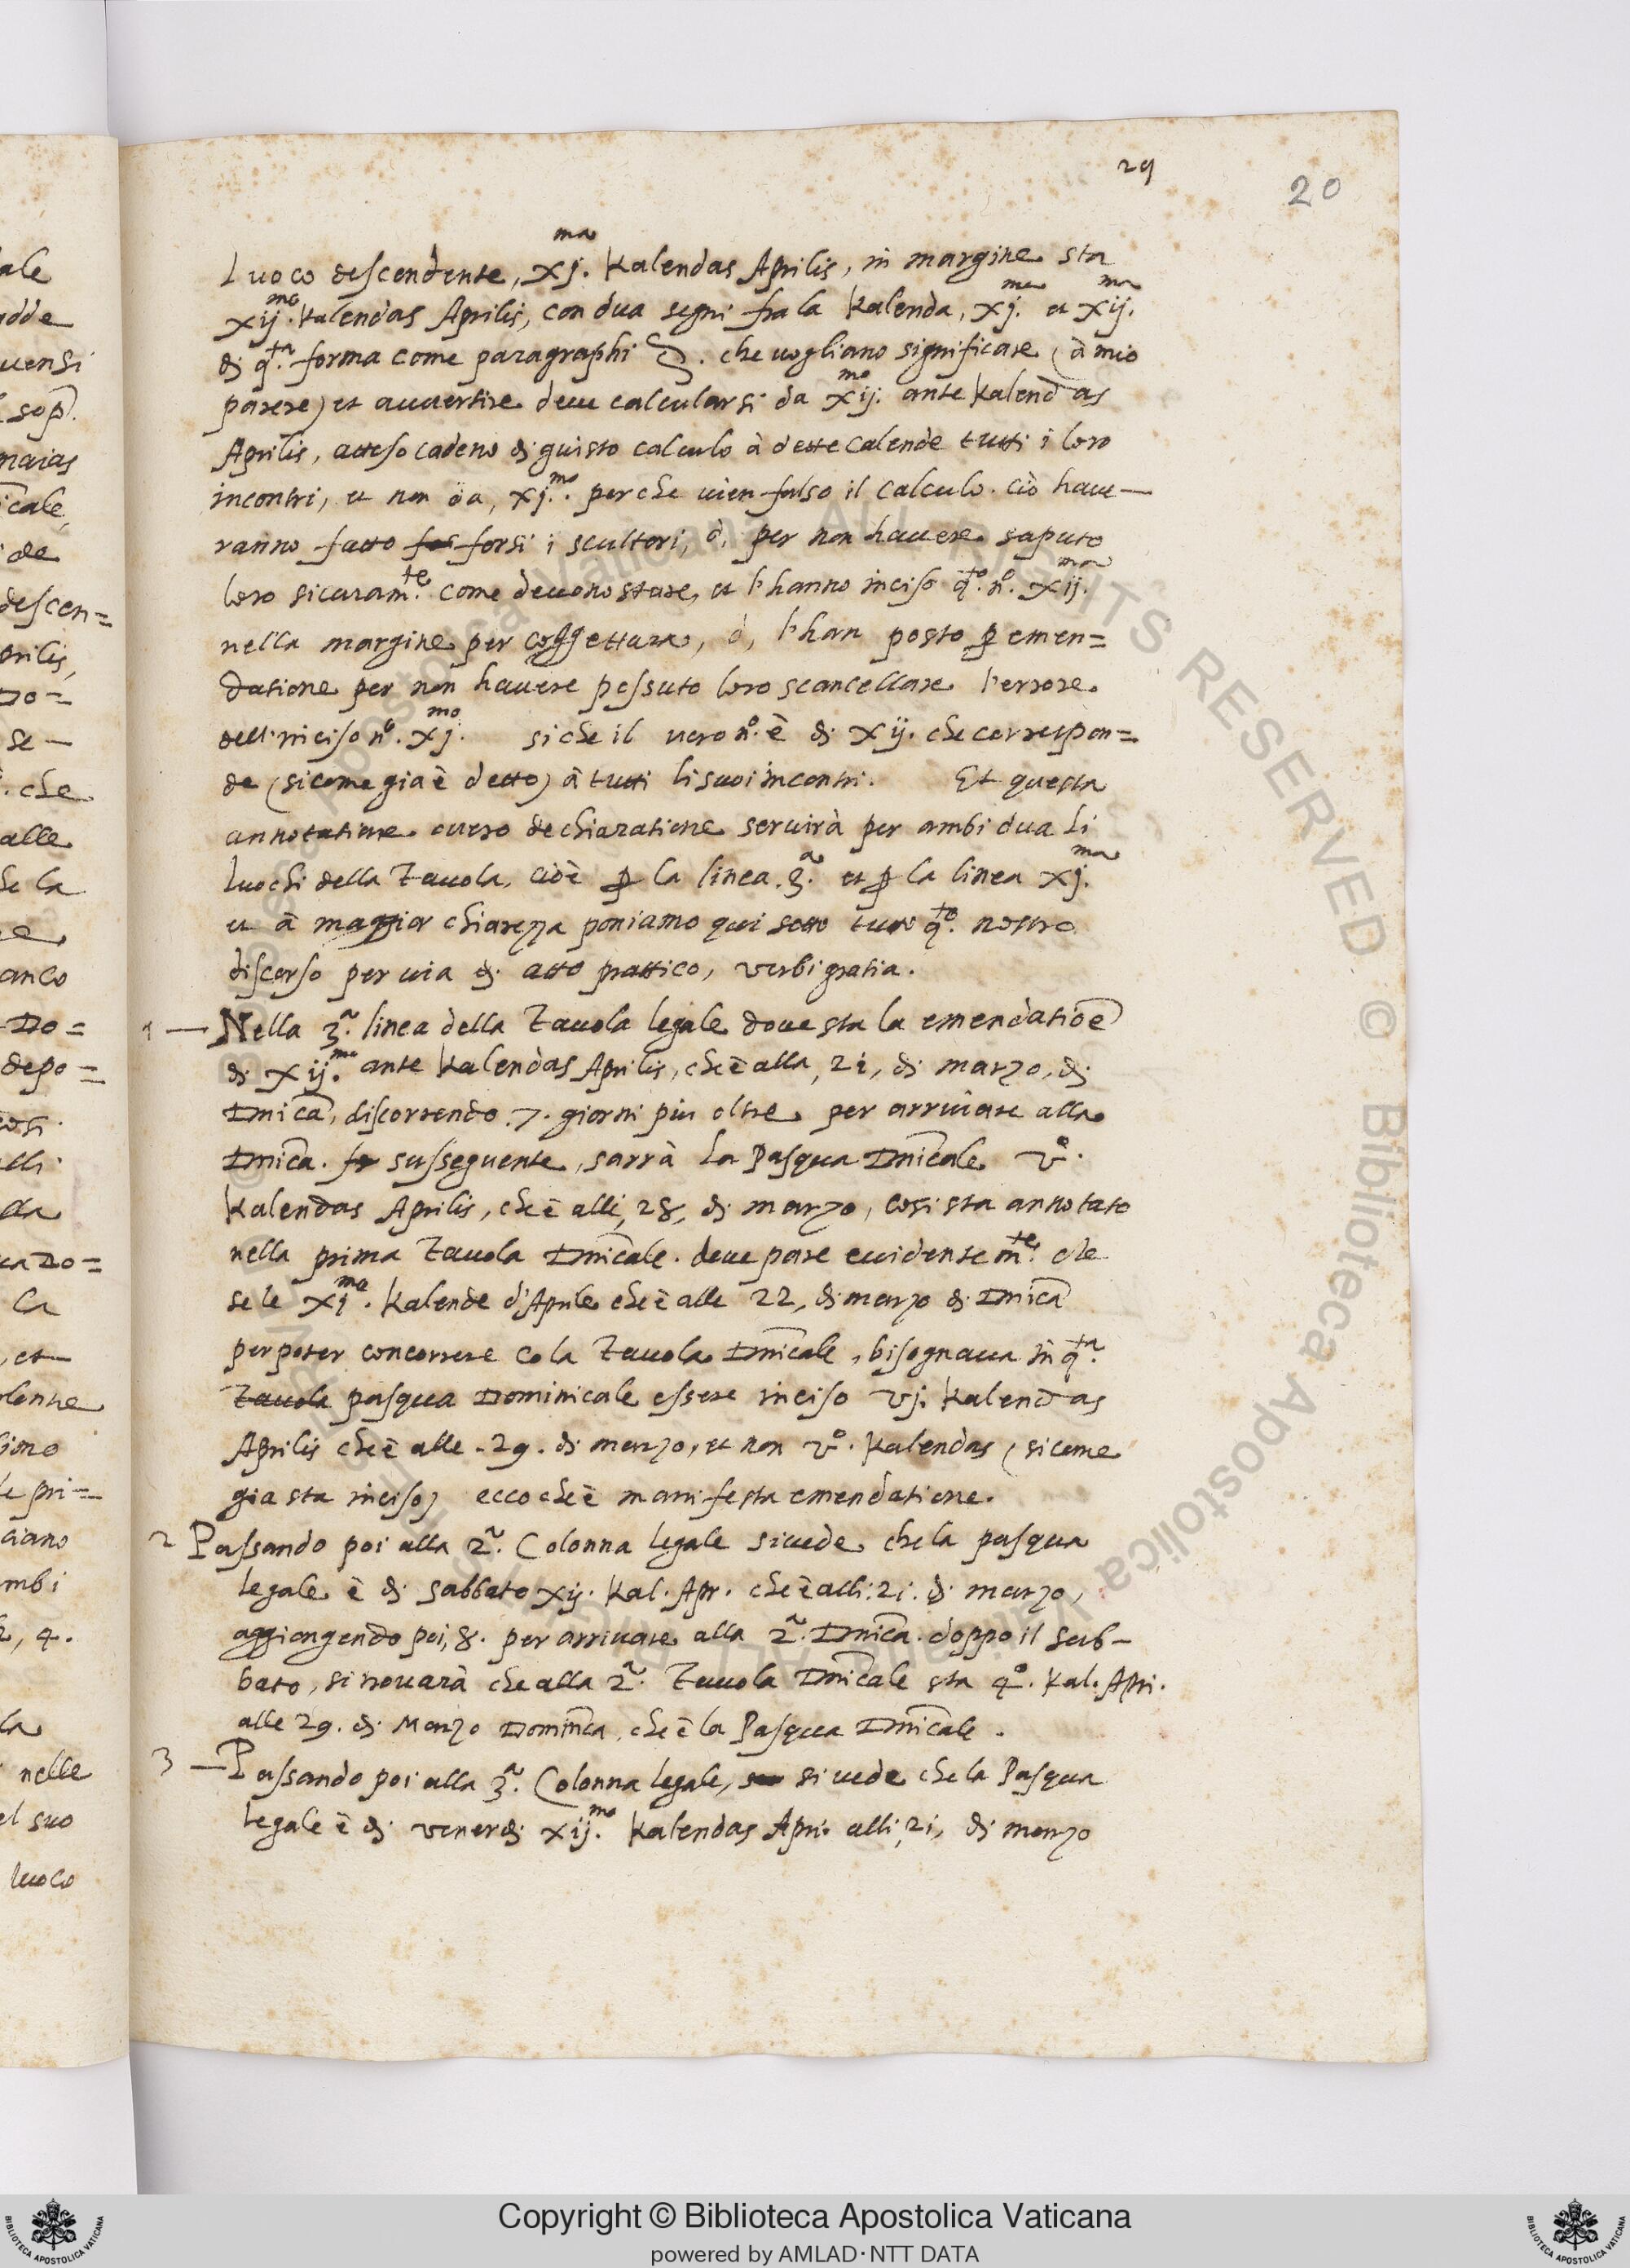 29
20
Luoco descendente, xj.ma Kalendas Aprilis, in margine sta
xij.mo Kalendas Aprilis, con dua segni fra la Kalenda, xj.ma et xij.ma
di q.ta forma come paragraphi . che uogliano significare (à mio
parere) et auuertire deue calcularsi da xij.mo ante Kalendas
Aprilis, atteso cadeno di guisto calculo à dette calende tutti i loro
incontri, et non da, xj.mo perche uien falso il calculo. ciò haue-
ranno fatto forsi i scultori, ò, per non hauere saputo
loro sicuram.te come deuono stare, et l'hanno inciso q.to n.o xij.mo
nella margine per coggettura, ò, l'han posto p emen=
datione per non hauere possuto loro scancellare l'errore
dell'inciso n.o xj.mo si che il uero n.o è di xij. che correspon=
de (sicome gia è detto) à tutti li suoi incontri. Et questa
annotatione ouero dechiaratione seruirà per ambi dua li
luochi della Tauola, cioè p la linea .3.a et p la linea xj.ma
et à maggior chiarezza poniamo qui sotto tutto q.to nostro
discorso per uia di atto prattico, verbi gratia.
1 — Nella 3.a linea della Tauola legale doue sta la emendatioe
di xij.mo ante Kalendas Aprilis, che è alla, 21, di marzo, di
Dnica, discorrendo .7. giorni piu oltre per arriuare alla
Dnica. susseguente, sarrà la Pasqua Dnicale v.o
Kalendas Aprilis, che è alli, 28, di marzo, cosi sta annotato
nella prima Tauola Dnicale. deue pare euidentem.te che
se le xj.mo Kalende d'Aprile che è alle 22, di marzo di Dnica
per poter concorrere co la Tauola Dnicale, bisognaua in q.ta
Tauola pasqua Dominicale essere inciso vj. Kalendas
Aprilis che è alle .29. di marzo, et non v.o Kalendas (sicome
gia sta inciso) ecco che è manifesta emendatione.
2 Passando poi alla 2.a Colonna legale si uede che la pasqua
legale è di sabbato xij. Kal. Apr. che è alli .21. di marzo,
aggiongendo poi, 8. per arriuare alla 2.a Dnica. doppo il sab-
bato, si trouarà che alla 2.a Tauola Dnicale sta 4.o Kal. Apri.
alle 29. di Marzo Dominca, che è la Pasqua Dnicale.
3 — Passando poi alla 3.a Colonna legale, si uede che la Pasqua
legale è di venerdi xij.mo Kalendas Apri. alli, 21, di marzo
Copyright © Biblioteca Apostolica Vaticana
powered by AMLAD·NTT DATA